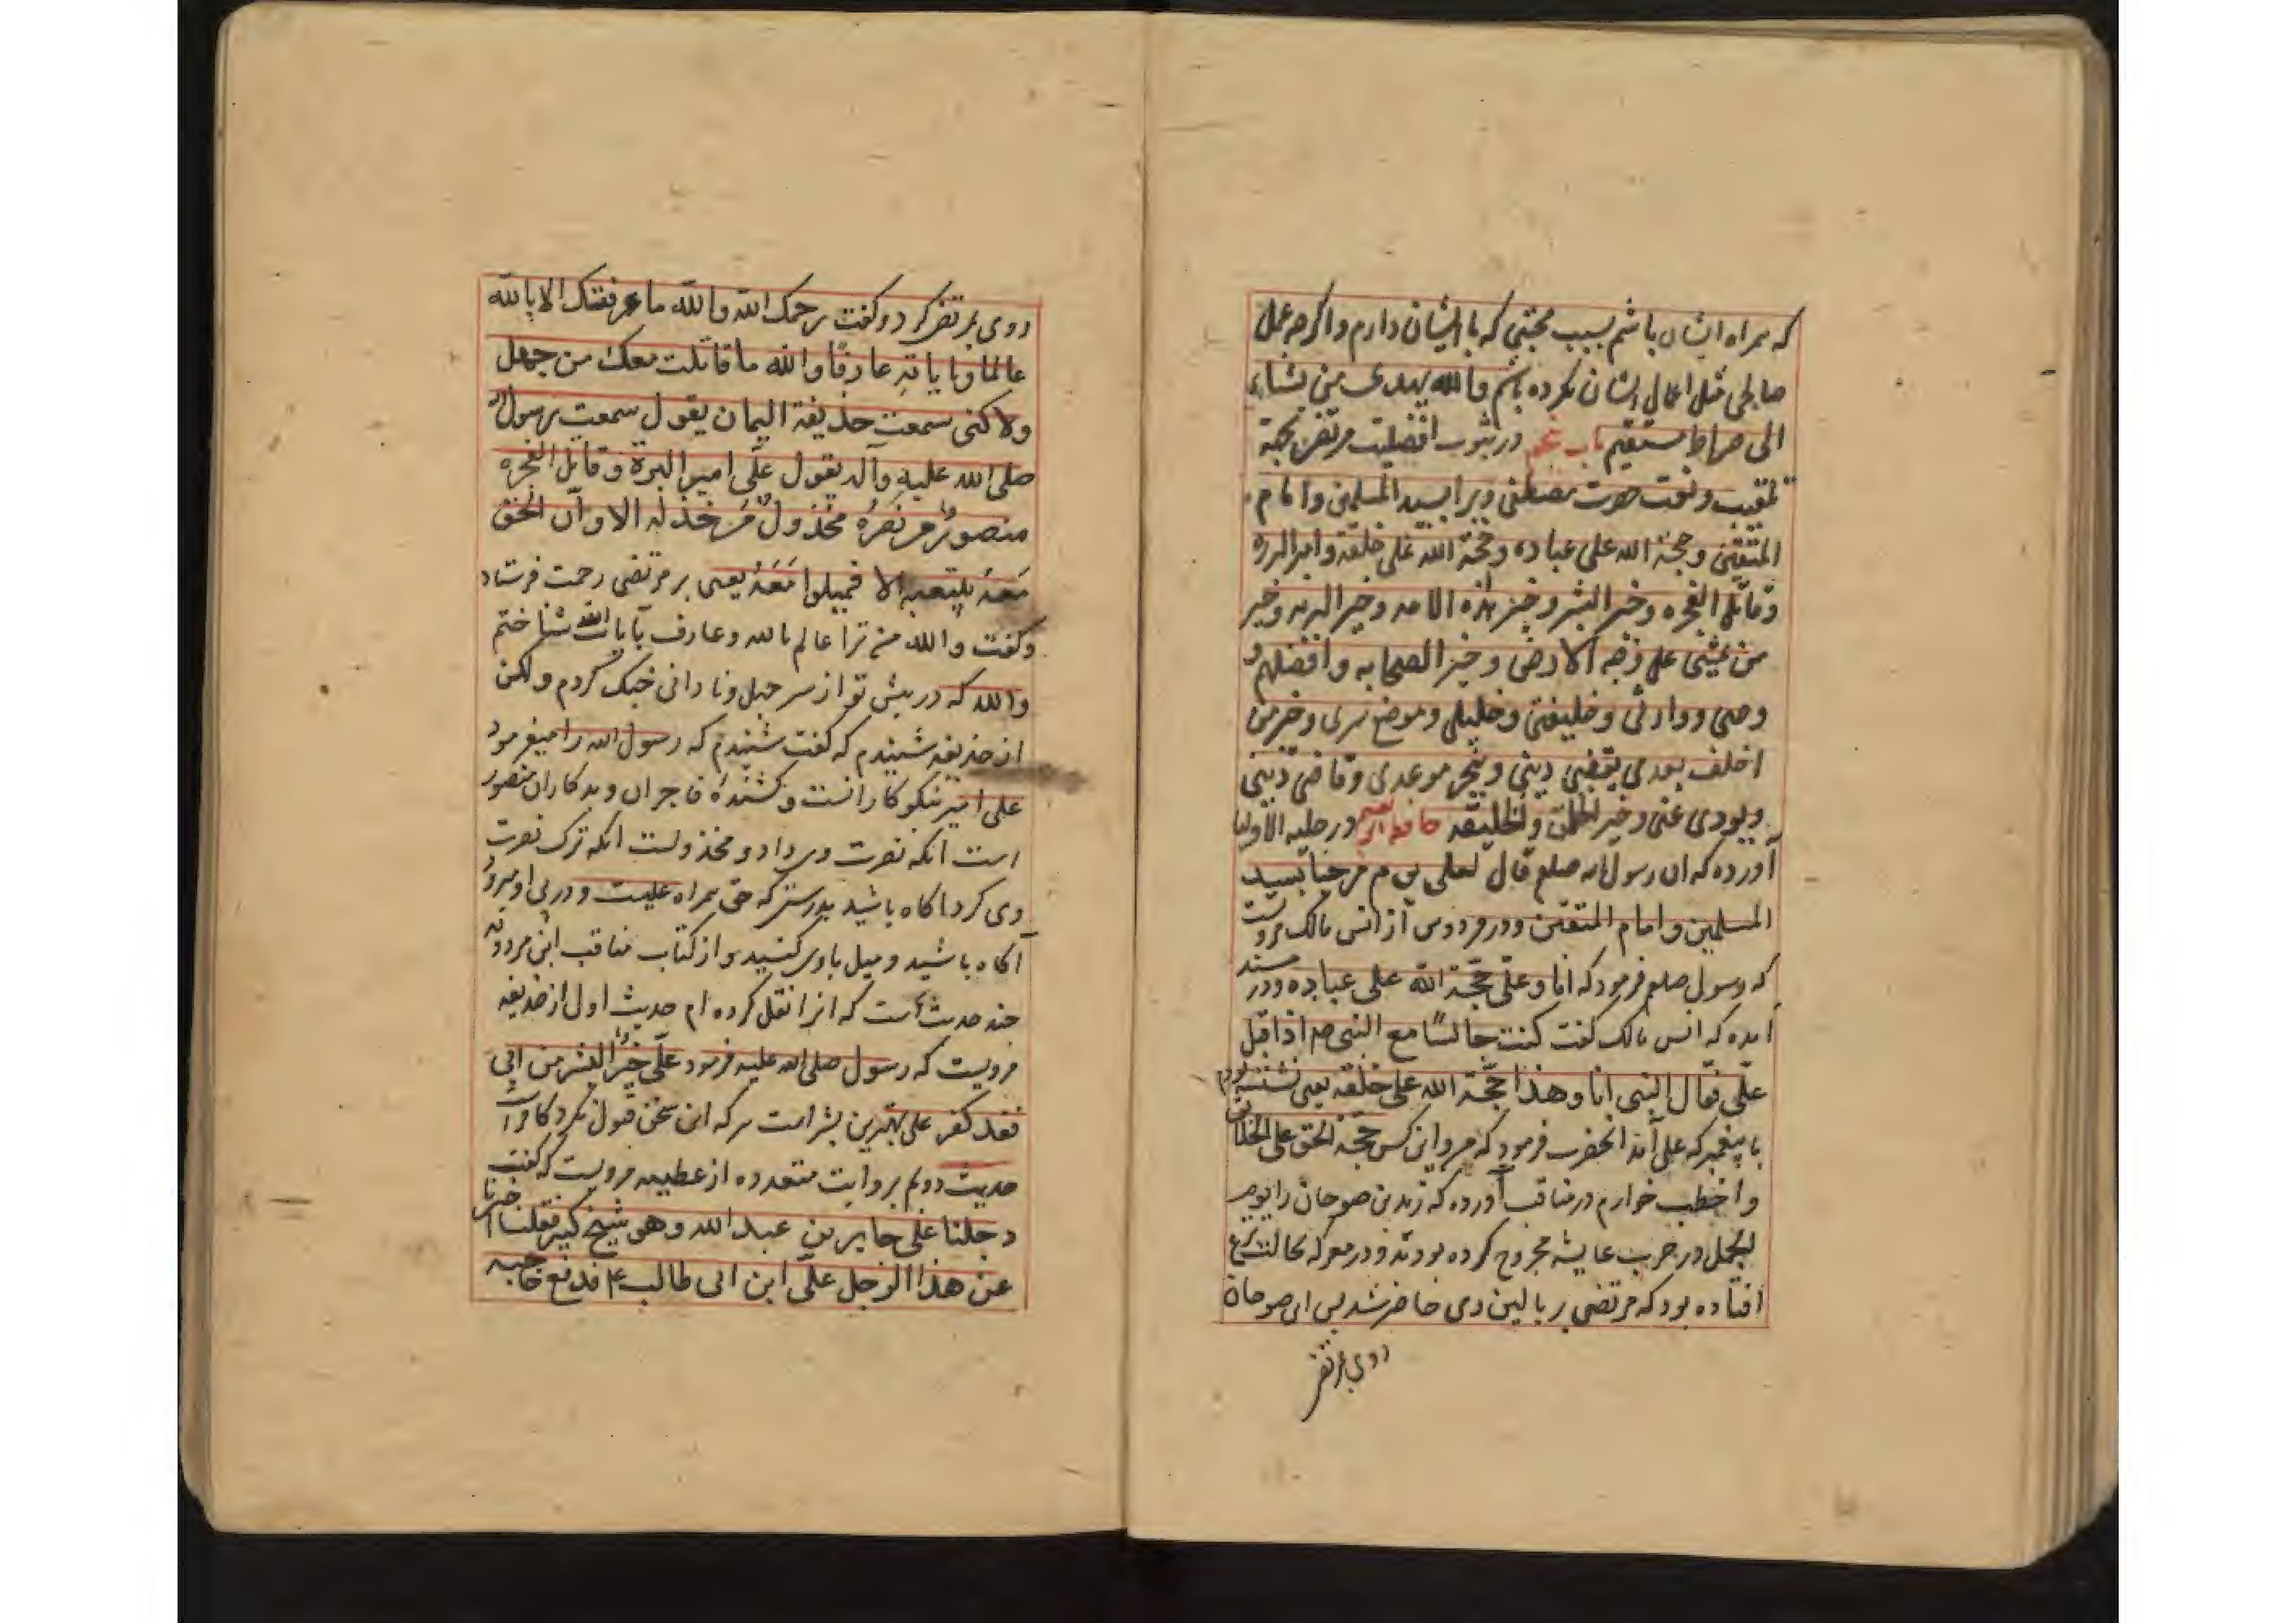 که همراه ایشان باشم بسبب محبتی که با ایشان دارم و اگرچه عمل
صالحی مثل اعمال ایشان نکرده باشم والله یهدی من یشاء
الی صراط مستقیم باب پنجم در ثبوت افضلیت مرتضی بجهة
تلقیب و نعت حضرت مصطفی ویرا بسید المسلمین و امام
المتقین و حجة الله علی عباده و حجة الله علی خلقه و امیر البرره
و قاتل الفجره و خیر البشر و خیر هذه الامه و خیر البریه و خیر
من یمشی علی وجه الارض و خیر الصحابه و افضلهم و
وصی و وارثی و خلیفتی و خلیلی و موضع سری و خیر من
اخلف بعدی یقضی دینی و ینجز موعدی و قاضی دینی
و یودی عنی و خیر الخلق والخلیقه حافظ ابو نعیم در حلیه الاولیا
آورده که ان رسول الله صلعم قال لعلی مرحبا بسید
المسلمین و امام المتقین و در فردوس از انس مالک مرویست
که رسول صلعم فرمود که انا و علی حجة الله علی عباده و در مسند
آمده که انس مالک گفت کنت جالسا مع النبی ص اذ اقبل
علی فقال النبی انا و هذا حجة الله علی خلقه یعنی نشسته بودم
با پیغمبر که علی آمد انحضرت فرمود که من و این کس حجة الحق علی الخلائق
و اخطب خوارم در مناقب آورده که زید بن صوحان را یوم
الجمل در حرب عایشه مجروح کرده بودند و در معرکه بحالت نزع
افتاده بود که مرتضی بر بالین وی حاضر شد پس ابن صوحان
روی بمرتضی
روی بمرتضی کرد و گفت رحمک الله والله ما عرفتک الا بالله
عالما و بایاته عارفا والله ما قاتلت معک من جهل
ولاکنی سمعت حذیفة الیمان یقول سمعت رسول الله
صلی الله علیه وآله یقول علی امیر البررة و قاتل الفجره
منصور من نصره مخذول من خذله الا وان الحق
معه یتبعه الا فمیلوا معه یعنی بر مرتضی رحمت فرستاد
و گفت والله من ترا عالم بالله و عارف بآیات الله شناختم
والله که در پیش تو از سر جهل و نادانی جنگ نکردم ولکن
از حذیفه شنیدم که گفت شنیدم که رسول الله را میفرمود
علی امیر نیکوکارانست و کشنده فاجران و بدکاران منصور
است انکه نصرت وی داد و مخذولست انکه ترک نصرت
وی کرد اگاه باشید بدرستی که حق همراه علیست و در پی او میرود
آگاه باشید و میل باوی کنید و از کتاب مناقب ابن مردویه
چند حدیث است که انرا نقل کرده ام حدیث اول از حذیفه
مرویست که رسول صلی الله علیه فرمود علی خیر البشر من ابی
فقد کفر علی بهترین بشر است هر که این سخن قبول نکرد کافر است
حدیث دوم بروایت متعدده از عطیه مرویست که گفت
دخلنا علی جابر بن عبدالله وهو شیخ کبیر فقلنا اخبرنا
عن هذا الرجل علی ابن ابی طالب ع فرفع حاجبیه